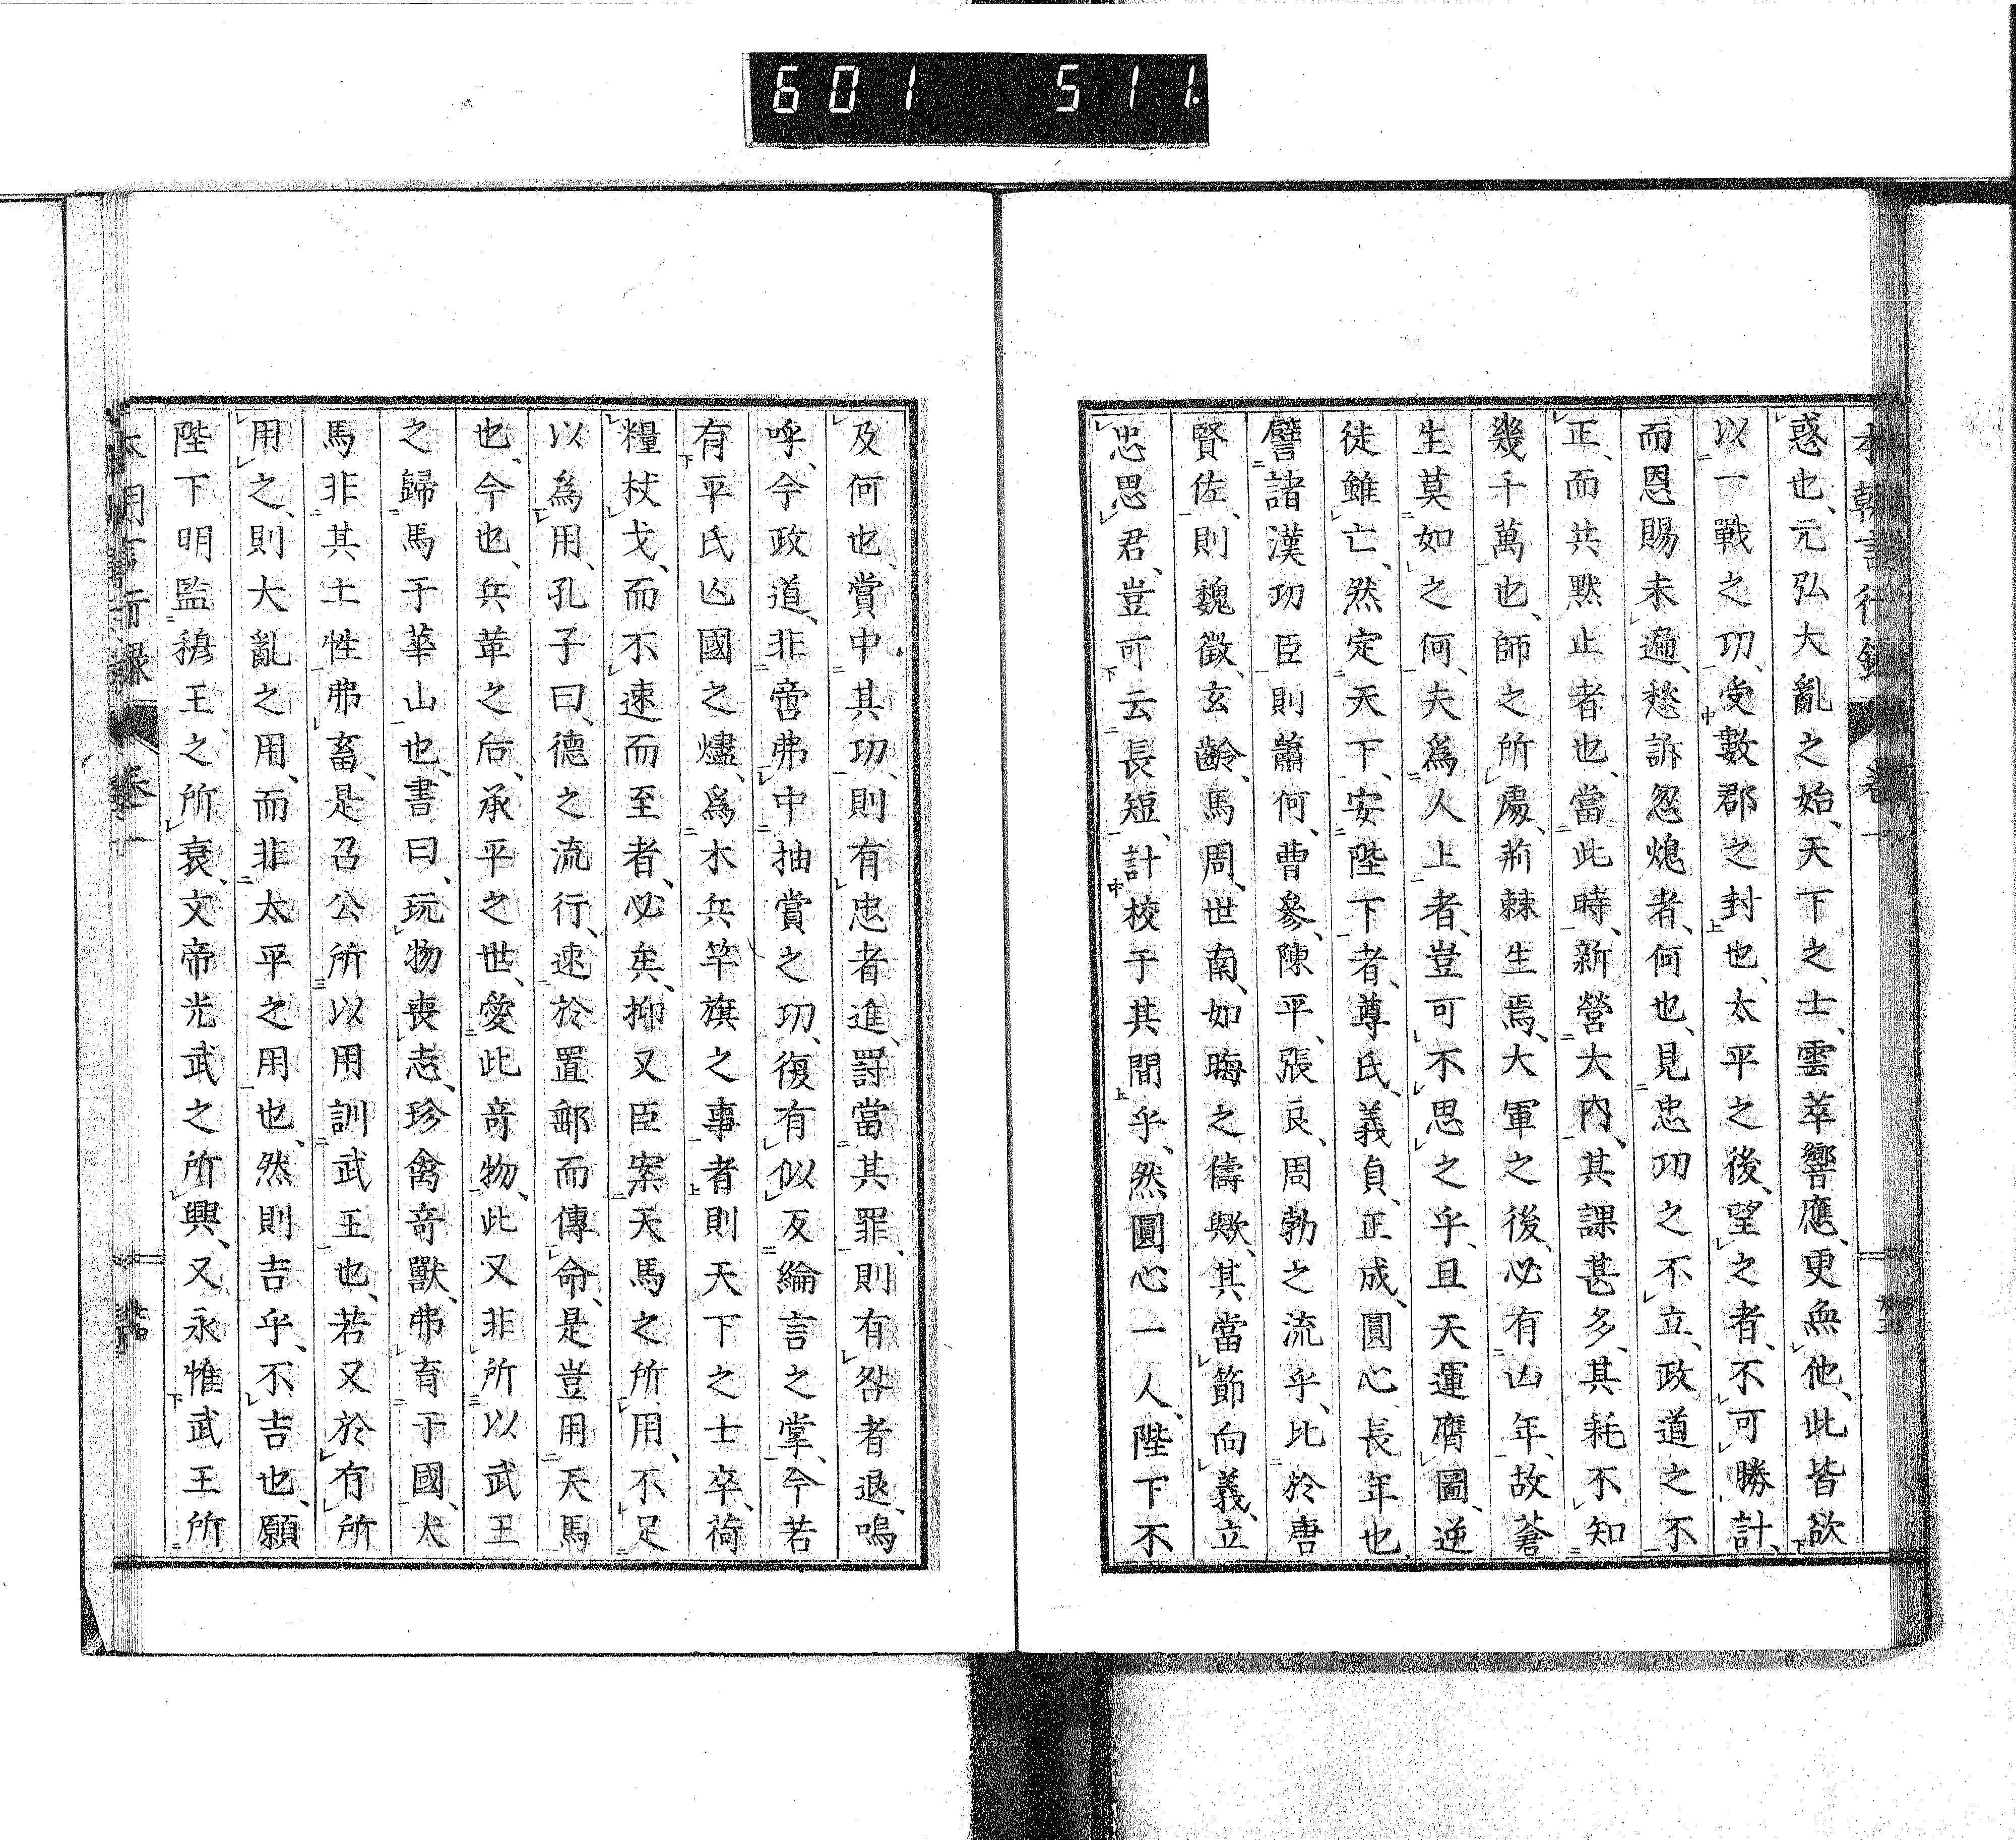 601 511.
本朝言行錄 卷一
惑也、元弘大亂之始、天下之士、雲萃響應、更無他、此皆欲
以一戰之功、受數郡之封也、太平之後、望之者、不可勝計、
而恩賜未遍、愁訴忽熄者、何也、見忠功之不立、政道之不
正、而共默止者也、當此時、新營大內、其課甚多、其耗不知
幾千萬也、師之所處、荊棘生焉、大軍之後、必有凶年、故蒼
生莫如之何、夫爲人上者、豈可不思之乎、且天運膺圖、逆
徒雖亡、然定天下、安陛下者、尊氏、義貞、正成、圓心、長年也
譬諸漢功臣則蕭何、曹參、陳平、張良、周勃之流乎、比於唐
賢佐、則魏徵、玄齡、馬周、世南、如晦之儔歟、其當節向義、立
忠思君、豈可云長短、計校于其間乎、然圓心一人、陛下不
及何也、賞中其功、則有忠者進、罸當其罪、則有咎者退、嗚
呼、今政道、非啻弗中抽賞之功、復有似反綸言之掌、今若
有平氏凶國之燼、爲木兵竿旗之事者則天下之士卒、荷
糧杖戈、而不速而至者、必矣、抑又臣案天馬之所用、不足
以爲用、孔子曰、德之流行、速於置郵而傳命、是豈用天馬
也、今也、兵革之后、承平之世、愛此奇物、此又非所以武王
之歸馬于華山也、書曰、玩物喪志、珍禽奇獸、弗育于國、犬
馬非其土性弗畜、是召公所以用訓武王也、若又於有所
用之、則大亂之用、而非太平之用也、然則吉乎、不吉也、願
陛下明監穆王之所衰、文帝光武之所興、又永惟武王所
本朝言行錄 卷一